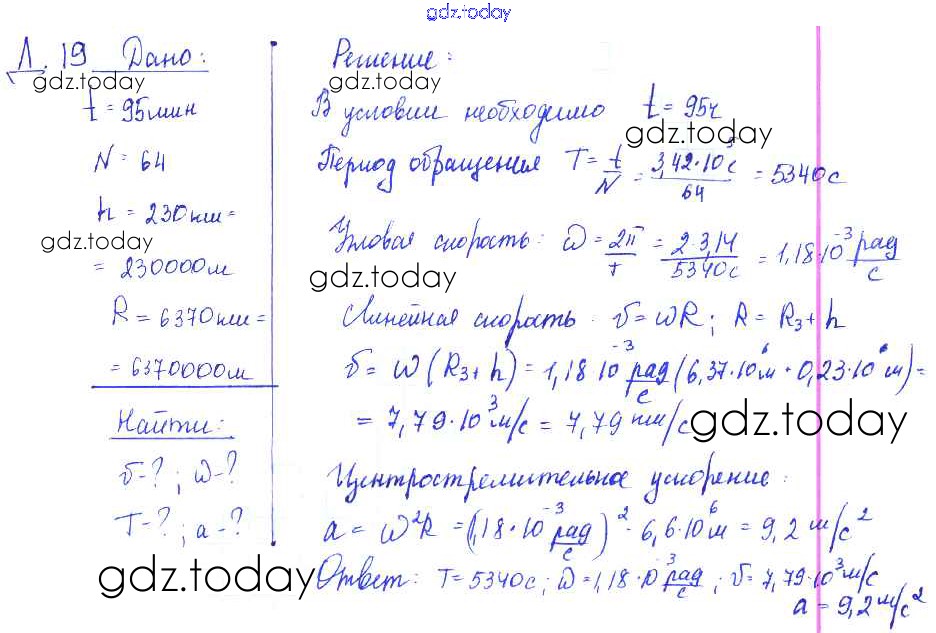 gdz.today
Л. 19 Дано:
gdz.today
t = 95мин
N = 64
h = 230км =
gdz.today
= 230000м
R = 6370км =
= 6370000м
Найти:
υ-?; ω-?
T-?; a-?
gdz.today
Решение:
В условии необходимо t = 95ч
gdz.today
Период обращения T = t/N = 3,42·10⁵с/64 = 5340с
Угловая скорость: ω = 2π/T = 2·3,14/5340с = 1,18·10⁻³ рад/с
gdz.today
Линейная скорость: υ = ωR; R = R₃ + h
υ = ω(R₃ + h) = 1,18·10⁻³ рад/с (6,37·10⁶м + 0,23·10⁶м) =
= 7,79·10³м/с = 7,79 км/с
gdz.today
Центростремительное ускорение:
a = ω²R = (1,18·10⁻³ рад/с)² · 6,6·10⁶м = 9,2 м/с²
Ответ: T = 5340с; ω = 1,18·10⁻³ рад/с; υ = 7,79·10³м/с
a = 9,2м/с²